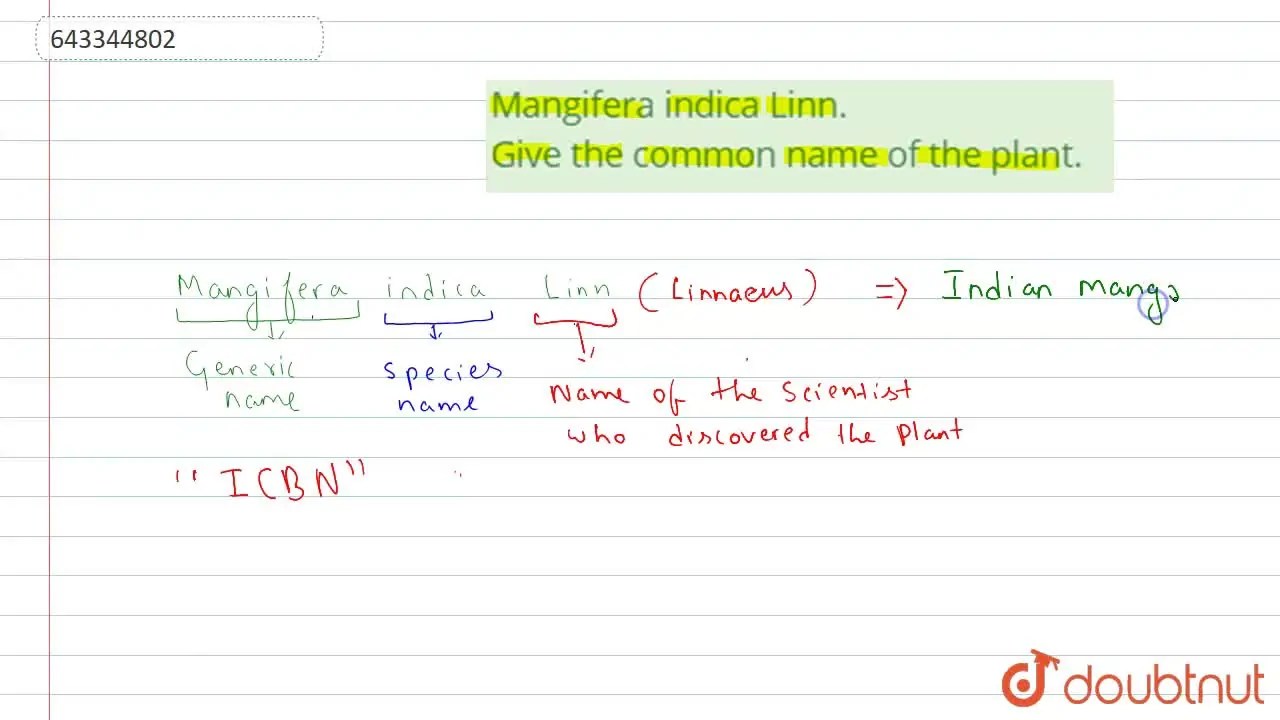 643344802
Mangifera indica Linn.
Give the common name of the plant.
Mangifera indica Linn (Linnaeus) => Indian mango
Generic name
species name
Name of the scientist
who discovered the plant
"ICBN"
doubtnut